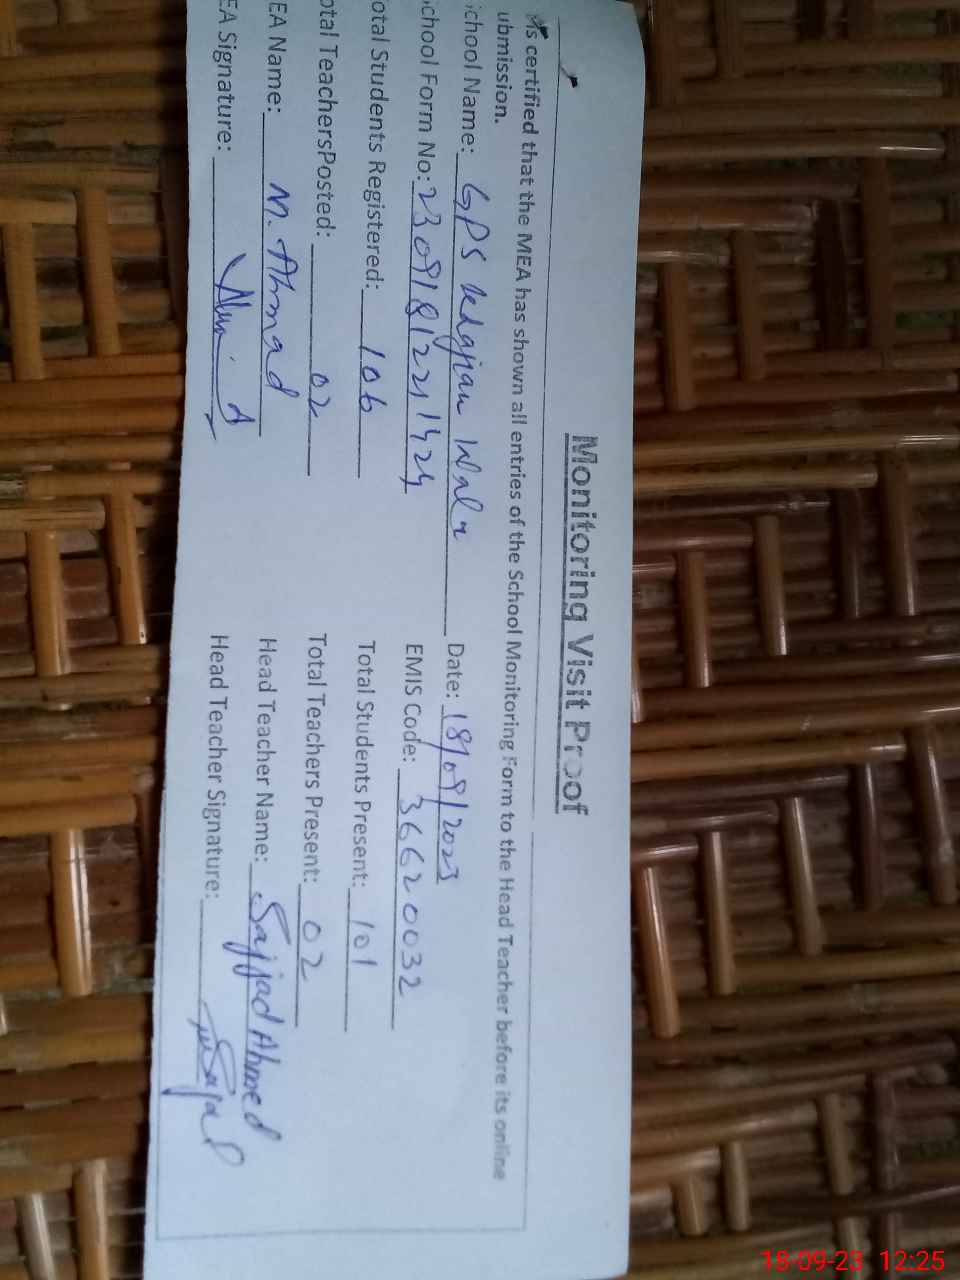 Monitoring Visit Proof
is certified that the MEA has shown all entries of the School Monitoring Form to the Head Teacher before its online
ubmission.
chool Name: GPS Wala Date: 18/09/2023
chool Form No: 23091812211424 EMIS Code: 36620032
otal Students Registered: 106 Total Students Present: 101
otal TeachersPosted: 02 Total Teachers Present: 02
EA Name: M. Ahmad Head Teacher Name: Sajjad Ahmed
EA Signature: Head Teacher Signature:
18-09-23 12:25